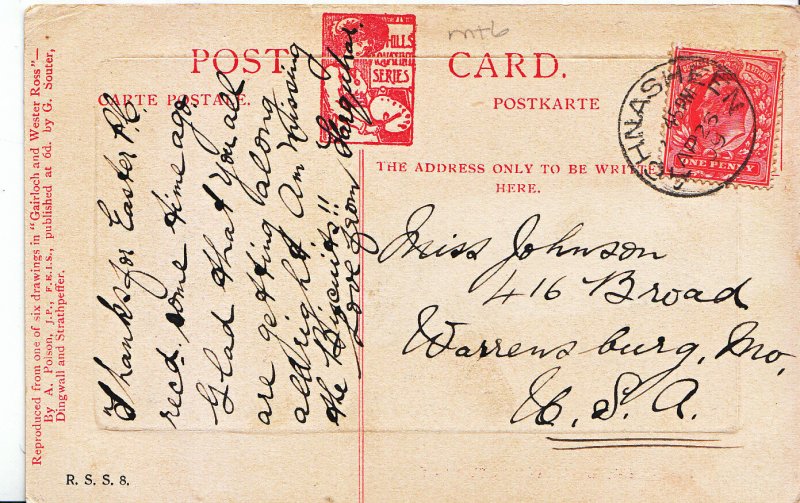 POST CARD.
CARTE POSTALE.
POSTKARTE
HILLS
AQUATINT
SERIES
THE ADDRESS ONLY TO BE WRITTEN
HERE.
ONE PENNY
mtb
Thanks for Easter P.C.
recd. some time ago.
Glad that you all
are getting along
allright. Am missing
the Biscuits!!
Love from Farquhar.
Miss Johnson
416 Broad
Warrensburg, Mo,
U.S.A.
Reproduced from one of six drawings in "Gairloch and Wester Ross"—
By A. Polson, J.P., F.E.I.S., published at 6d. by G. Souter,
Dingwall and Strathpeffer.
R. S. S. 8.